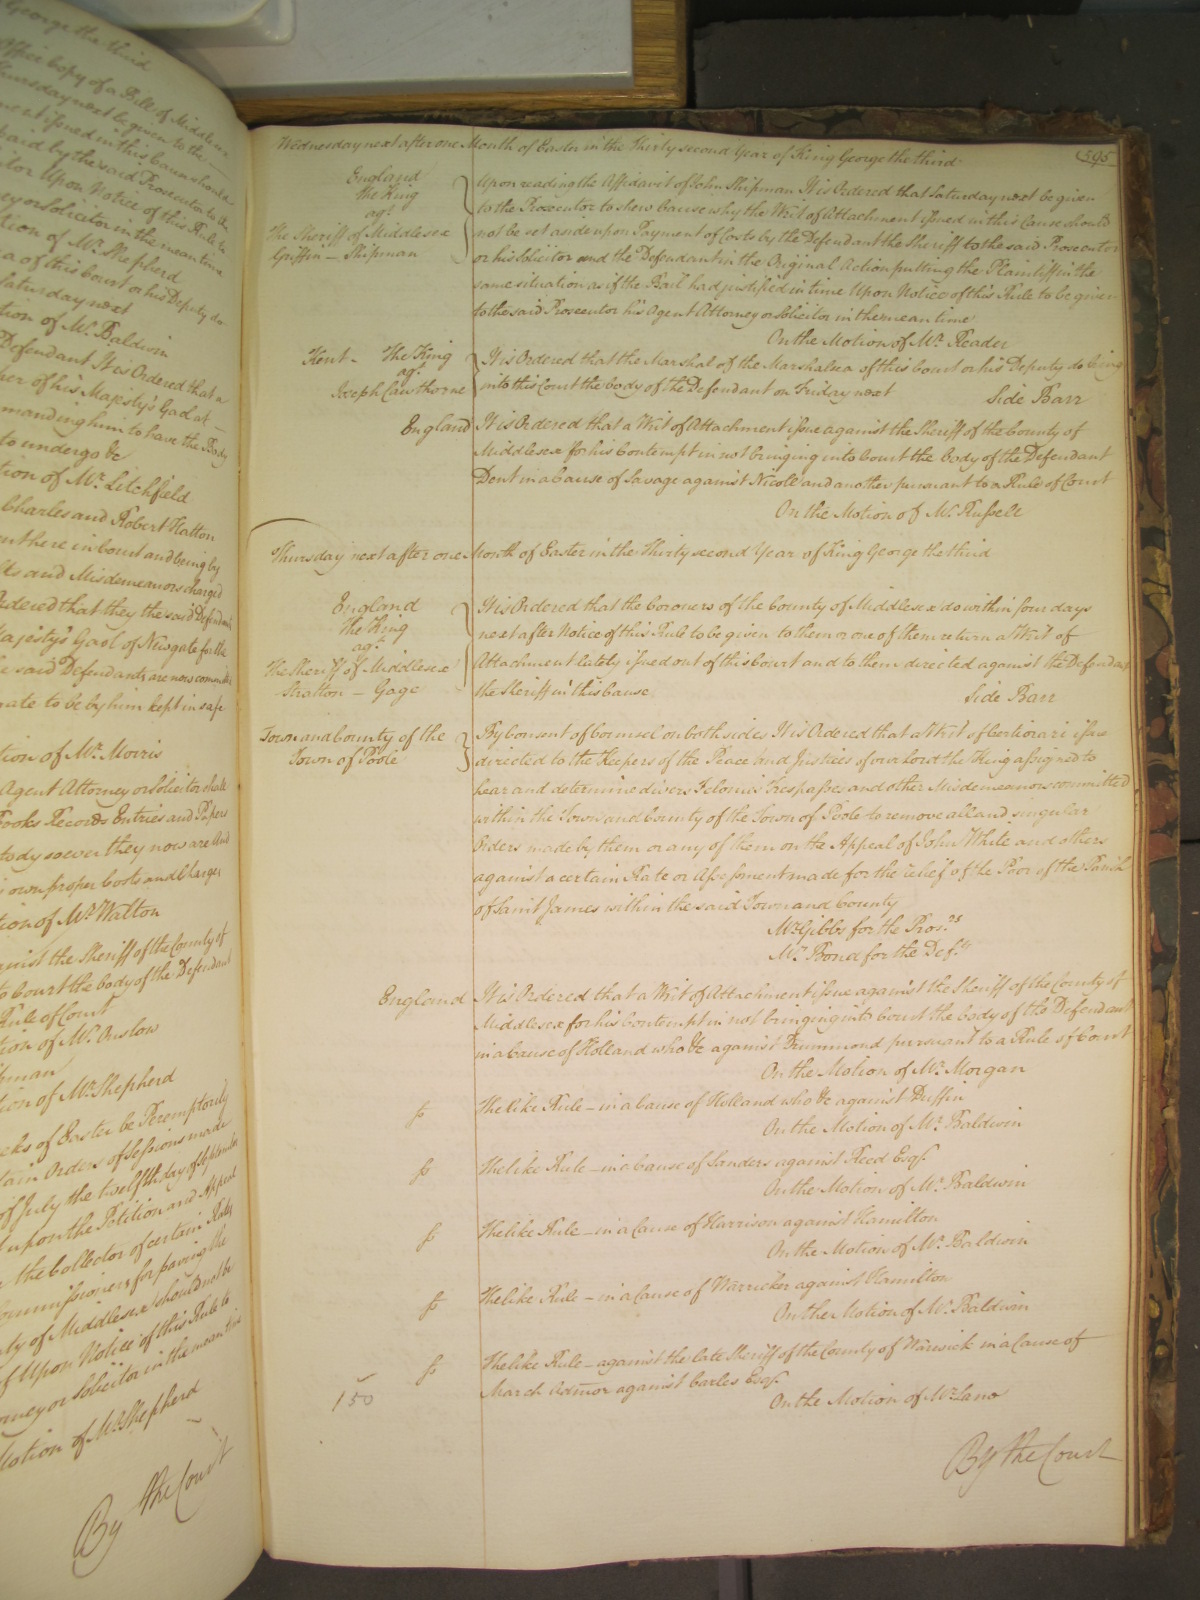 George the third
Office Copy of a Bill of Middlesex
Thursday next be given to the
ment issued in this Cause should
paid by the said Prosecutor to the
Upon Notice of this Rule to
ney or Solicitor in the mean time
tion of Mr. Shepherd
a of this Court or his Deputy do
Saturday next
tion of Mr. Baldwin
Defendant It is Ordered that a
per of his Majesty's Gaol at
manding him to have the Body
to undergo &c
tion of Mr. Litchfield
Charles and Robert Hatton
ent here in Court and being by
and Misdemeanors charged
Ordered that they the said Defendants
Majesty's Gaol of Newgate for the
said Defendants are now committed
gate to be by him kept in safe
tion of Mr. Morris
Agent Attorney or Solicitor shall
Books Records Entries and Papers
tody soever they now are And
own proper Costs and Charges
tion of Mr. Walton
against the Sheriff of the County of
to Court the body of the Defendant
Rule of Court
tion of Mr. Onslow
tion of Mr. Shepherd
eks of Easter be Peremptorily
tain Orders of Sessions made
of July the twelfth day of September
upon the Petition and Appeal
the Collector of certain Rates
Commissioners for paving the
ty of Middlesex should not be
Upon Notice of this Rule to
orney or Solicitor in the mean time
Motion of Mr. Shepherd
By the Court
Wednesday next after one Month of Easter in the Thirty second Year of King George the third
595
England
the King
agt.
The Sheriff of Middlesex
Griffin – Shipman
Upon reading the Affidavit of John Shipman It is Ordered that Saturday next be given
to the Prosecutor to shew Cause why the Writ of Attachment issued in this Cause should
not be set aside upon Payment of Costs by the Defendant the Sheriff to the said Prosecutor
or his Solicitor and the Defendant in the Original Action putting the Plaintiff in the
same situation as if the Bail had justified in time Upon Notice of this Rule to be given
to the said Prosecutor his Agent Attorney or Solicitor in the mean time
On the Motion of Mr. Reader
Kent – The King
agt.
Joseph Cawthorne
It is Ordered that the Marshal of the Marshalsea of this Court or his Deputy do bring
into this Court the body of the Defendant on Friday next
Side Barr
England
It is Ordered that a Writ of Attachment issue against the Sheriff of the County of
Middlesex for his Contempt in not bringing into Court the body of the Defendant
Dent in a Cause of Savage against Nicole and another pursuant to a Rule of Court
On the Motion of Mr. Russell
Thursday next after one Month of Easter in the Thirty second Year of King George the third
England
the King
agt.
The Sheriff of Middlesex
Stratton – Gage
It is Ordered that the Coroners of the County of Middlesex do within four days
next after Notice of this Rule to be given to them or one of them return a Writ of
Attachment lately issued out of this Court and to them directed against the Defendant
the Sheriff in this Cause
Side Barr
Town and County of the
Town of Poole
By Consent of Counsel on both sides It is Ordered that a Writ of Certiorari issue
directed to the Keepers of the Peace and Justices of our Lord the King assigned to
hear and determine divers Felonies Trespasses and other Misdemeanors committed
within the Town and County of the Town of Poole to remove all and singular
Orders made by them or any of them on the Appeal of John White and others
against a certain Rate or Assessment made for the relief of the Poor of the Parish
of Saint James within the said Town and County
Mr. Gibbs for the Pros.rs
Mr. Bond for the Def.ts
England
It is Ordered that a Writ of Attachment issue against the Sheriff of the County of
Middlesex for his Contempt in not bringing into Court the body of the Defendant
in a Cause of Holland who &c against Drummond pursuant to a Rule of Court
On the Motion of Mr. Morgan
fs
The like Rule – in a Cause of Holland who &c against Duffin
On the Motion of Mr. Baldwin
fs
The like Rule – in a Cause of Sanders against Reed Esqr.
On the Motion of Mr. Baldwin
fs
The like Rule – in a Cause of Harrison against Hamilton
On the Motion of Mr. Baldwin
fs
The like Rule – in a Cause of Warricker against Hamilton
On the Motion of Mr. Baldwin
fs
The like Rule – against the late Sheriff of the County of Warwick in a Cause of
March Admor against Carles Esqr.
On the Motion of Mr. Lane
150
By the Court